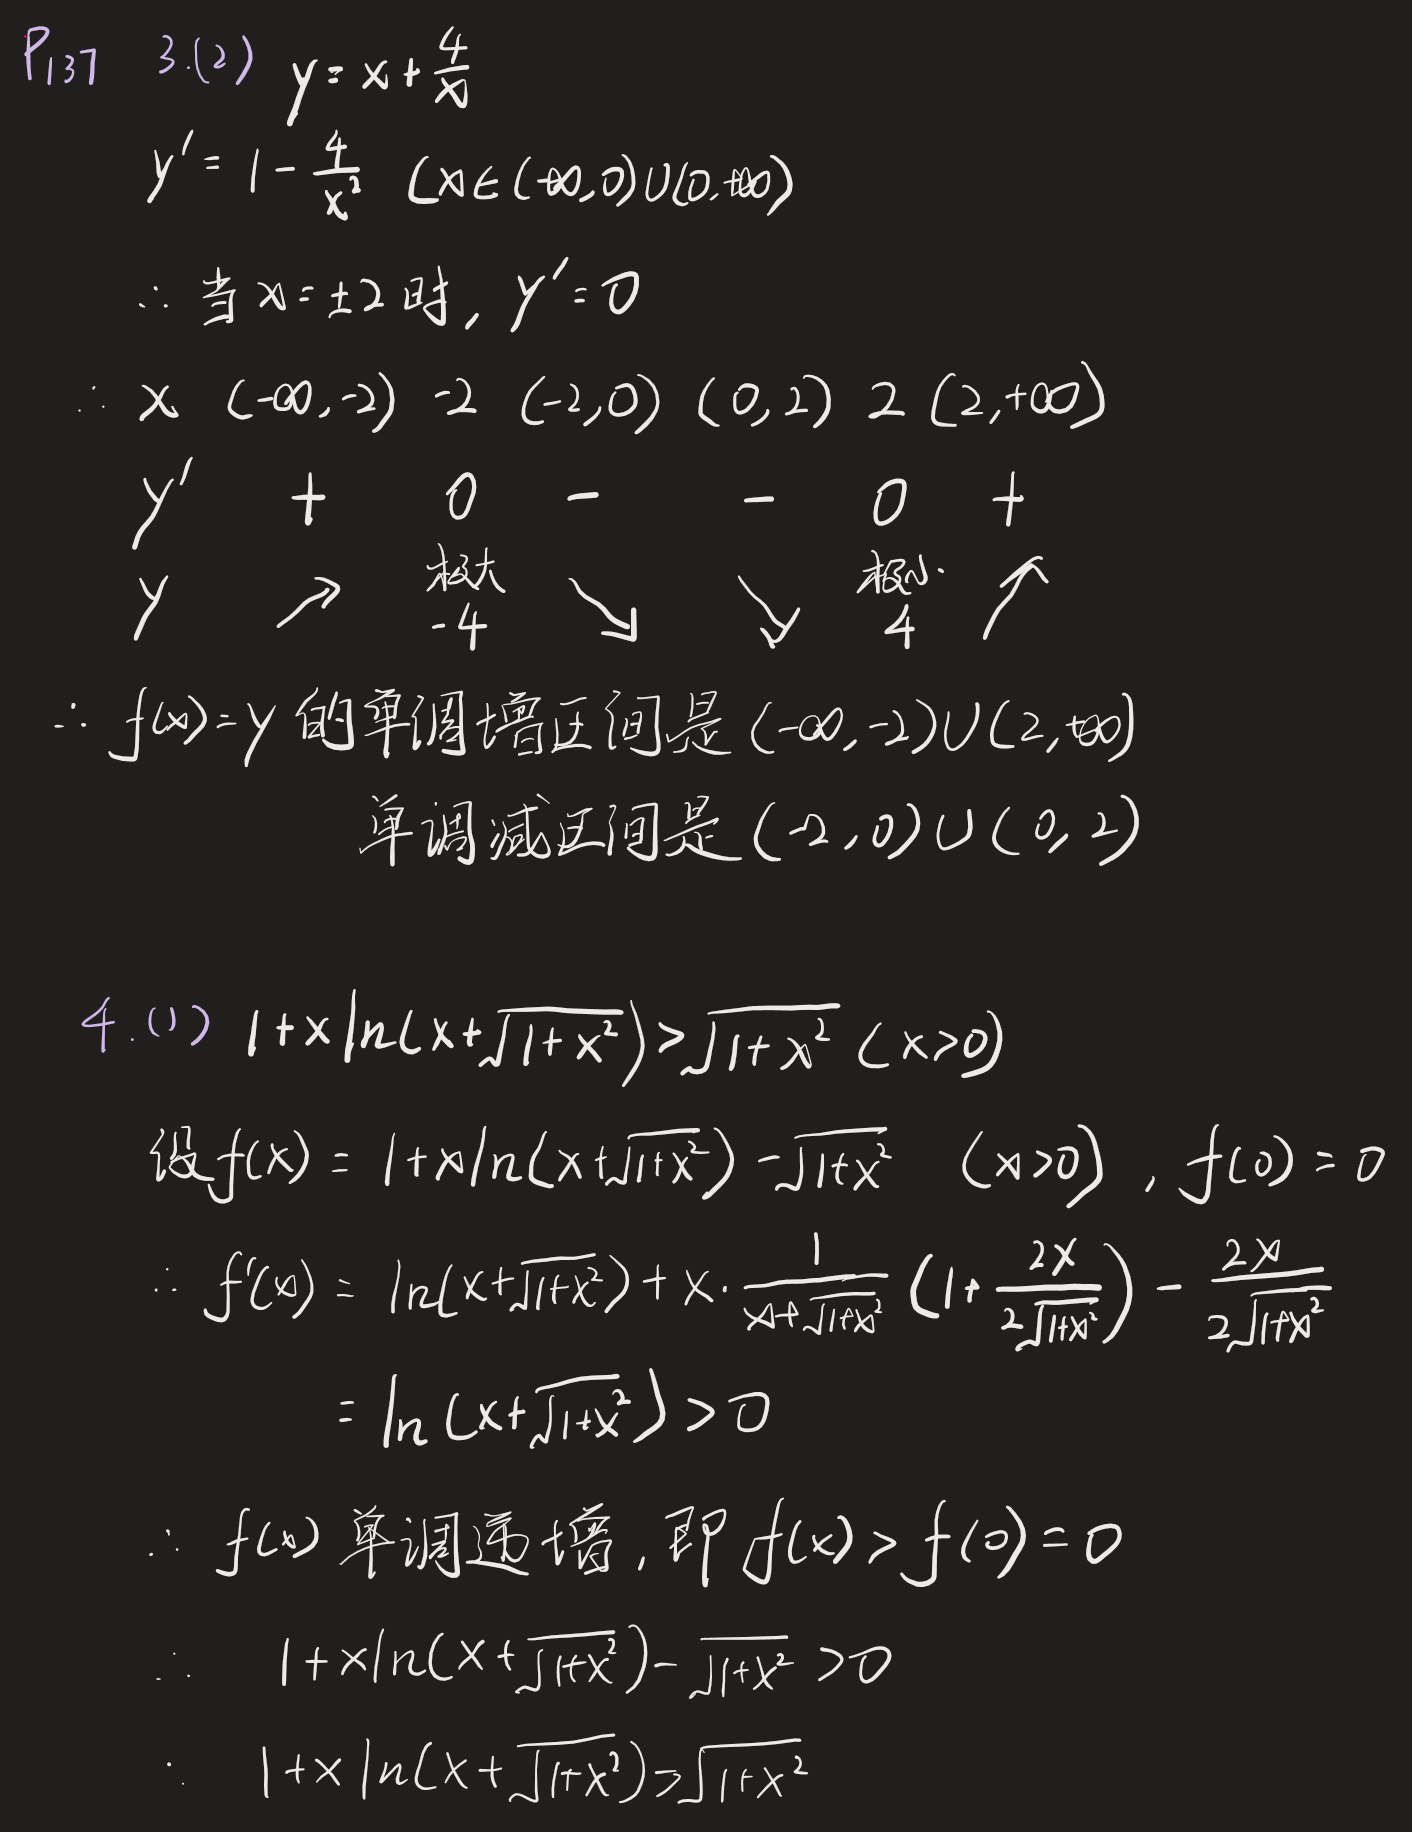 P137 3.(2) y = x + 4/x
y' = 1 - 4/x² (x∈(-∞,0)∪(0,+∞)
∴ 当 x = ±2 时, y' = 0
∴ x (-∞,-2) -2 (-2,0) (0,2) 2 (2,+∞)
y' + 0 - - 0 +
y ↗ 极大 -4 ↘ ↘ 极小 4 ↗
∴ f(x)=y 的单调增区间是(-∞,-2)∪(2,+∞)
单调减区间是(-2,0)∪(0,2)
4.(1) 1+xln(x+√(1+x²))>√(1+x²) (x>0)
设f(x) = 1+xln(x+√(1+x²)) - √(1+x²) (x>0), f(0)=0
∴ f'(x) = ln(x+√(1+x²)) + x · 1/(x+√(1+x²)) (1+ 2x/(2√(1+x²))) - 2x/(2√(1+x²))
= ln(x+√(1+x²)) > 0
∴ f(x) 单调递增, 即 f(x) > f(0) = 0
∴ 1+xln(x+√(1+x²)) - √(1+x²) > 0
∴ 1+xln(x+√(1+x²)) > √(1+x²)